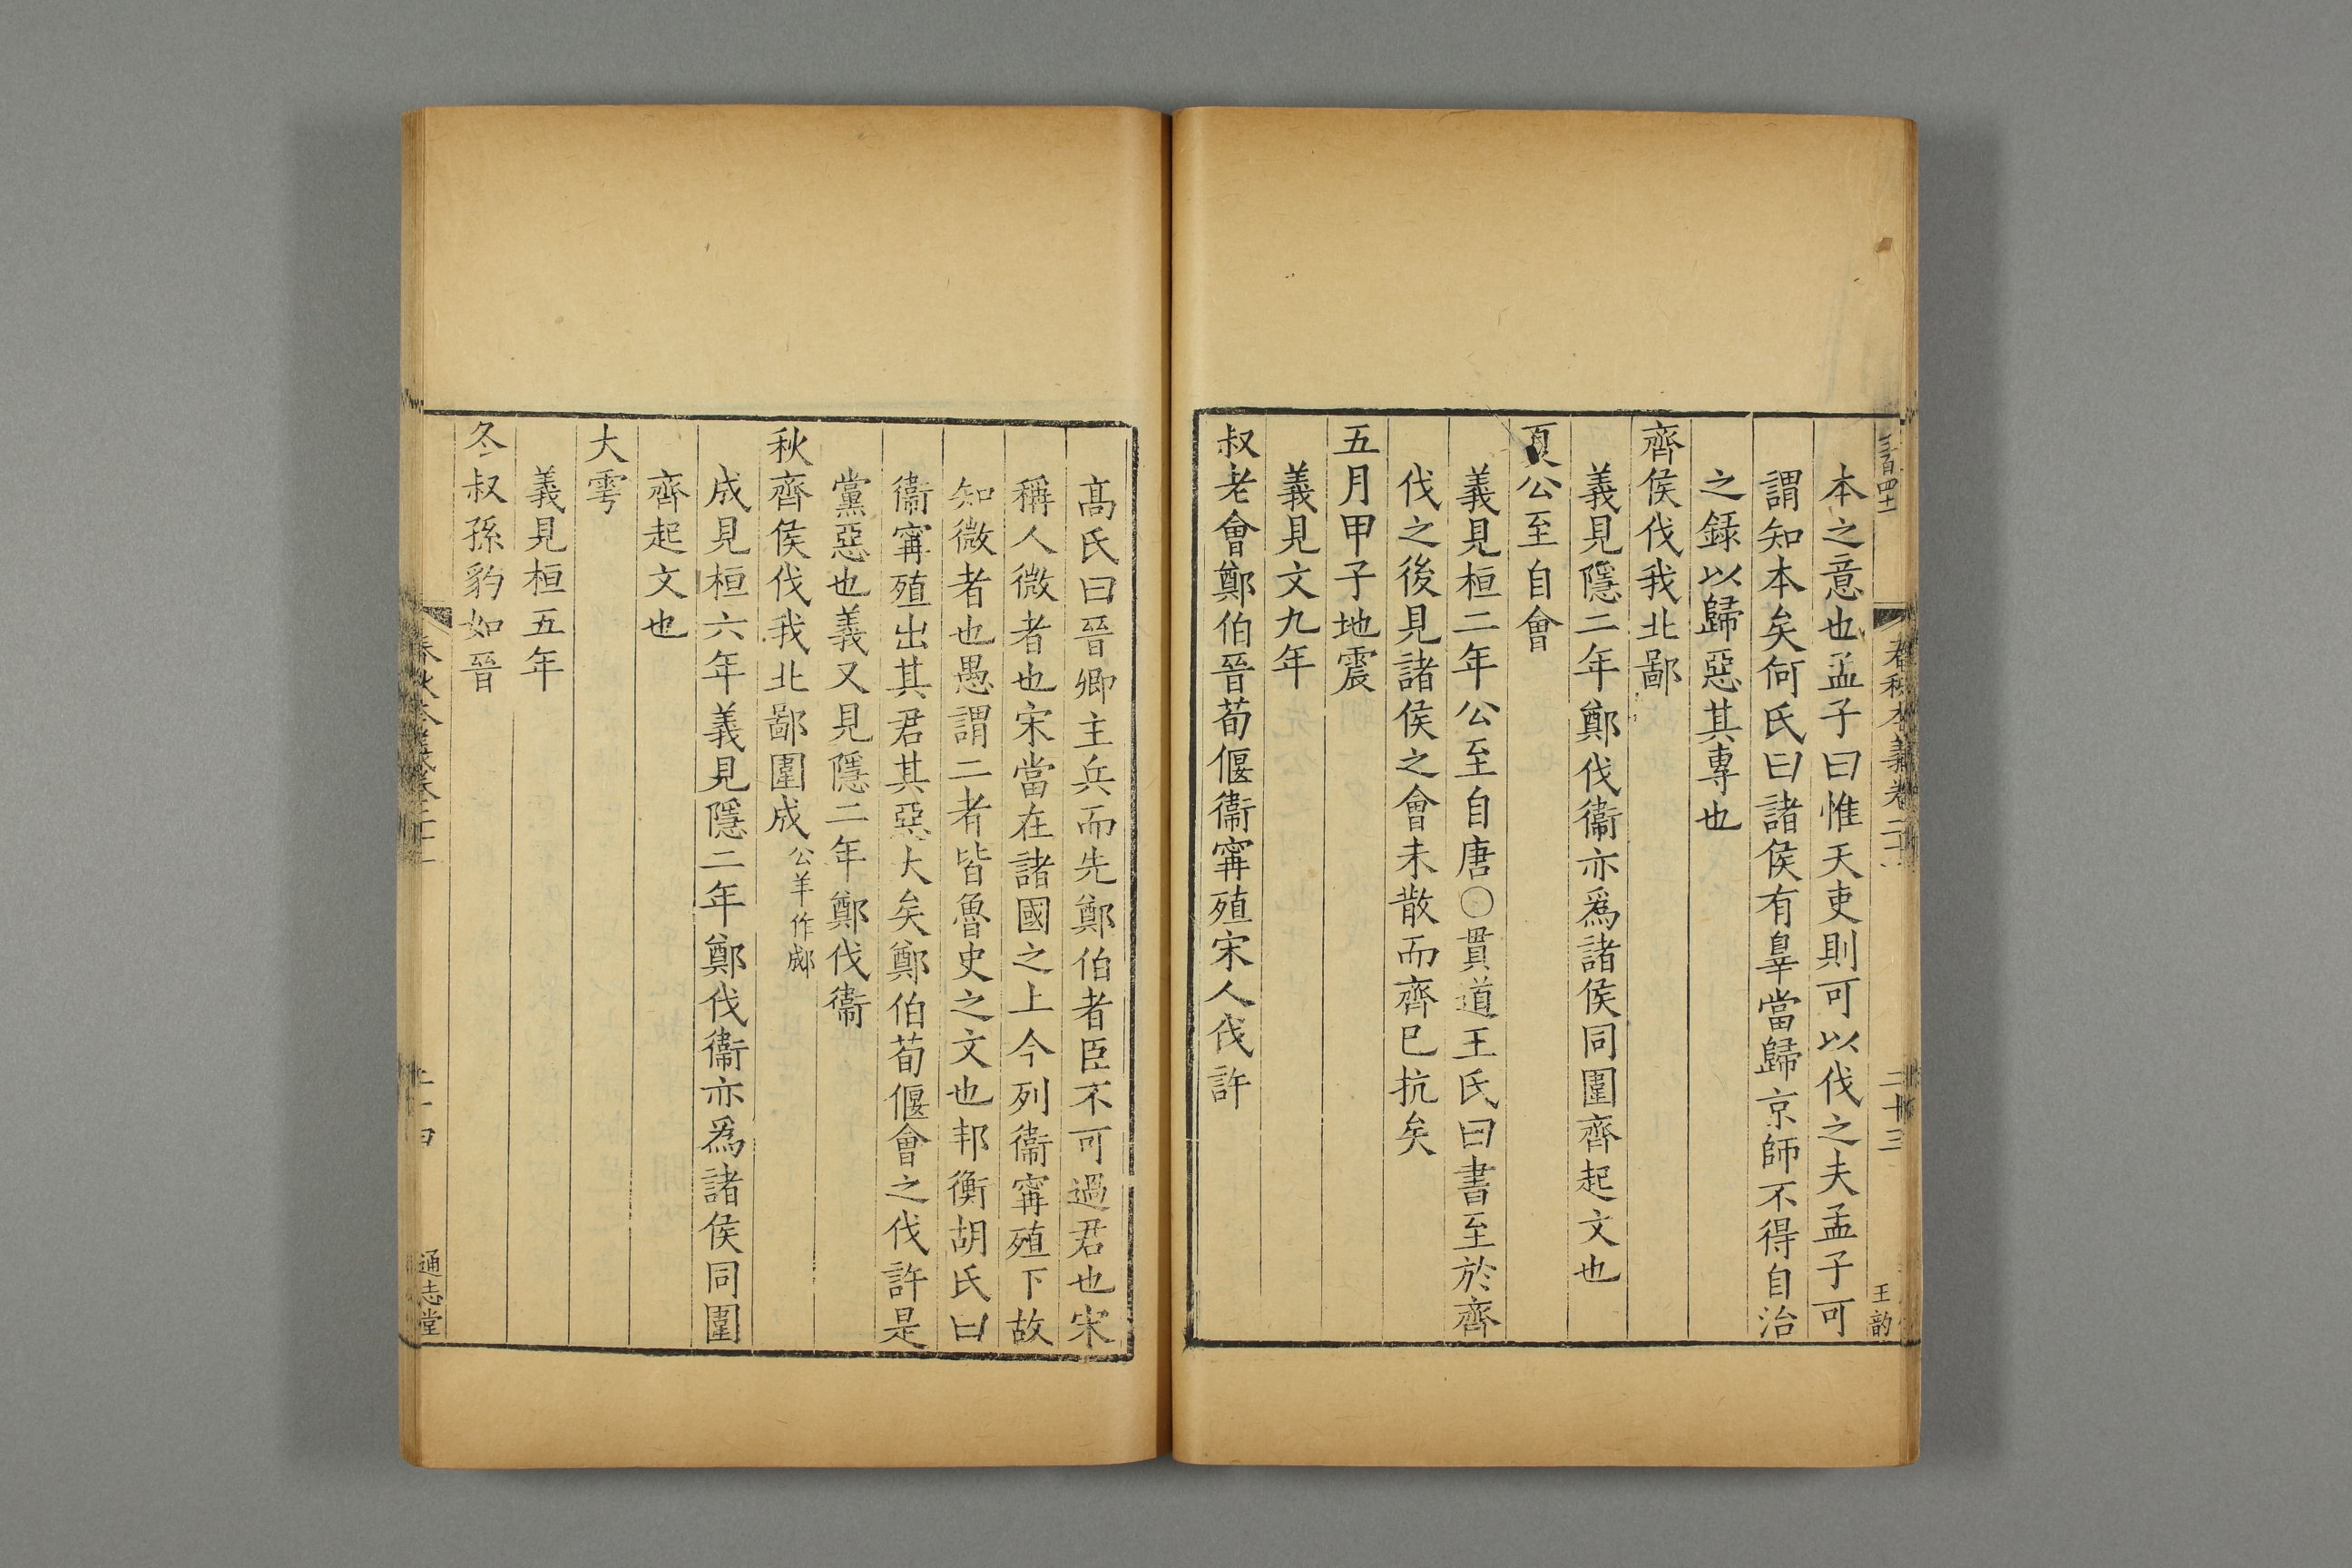 本之意也孟子曰惟天吏則可以伐之夫孟子可
謂知本矣何氏曰諸侯有辠當歸京師不得自治
之錄以歸惡其專也
齊侯伐我北鄙
義見隱二年鄭伐衞亦爲諸侯同圍齊起文也
夏公至自會
義見桓二年公至自唐○貫道王氏曰書至於齊
伐之後見諸侯之會未散而齊已抗矣
五月甲子地震
義見文九年
叔老會鄭伯晉荀偃衞甯殖宋人伐許
高氏曰晉卿主兵而先鄭伯者臣不可過君也宋
稱人微者也宋當在諸國之上今列衞甯殖下故
知微者也愚謂二者皆魯史之文也邦衡胡氏曰
衞甯殖出其君其惡大矣鄭伯荀偃會之伐許是
黨惡也義又見隱二年鄭伐衞
秋齊侯伐我北鄙圍成公羊作郕
成見桓六年義見隱二年鄭伐衞亦爲諸侯同圍
齊起文也
大雩
義見桓五年
冬叔孫豹如晉
春秋本義卷二十一
二十三
王韵
二十四
通志堂